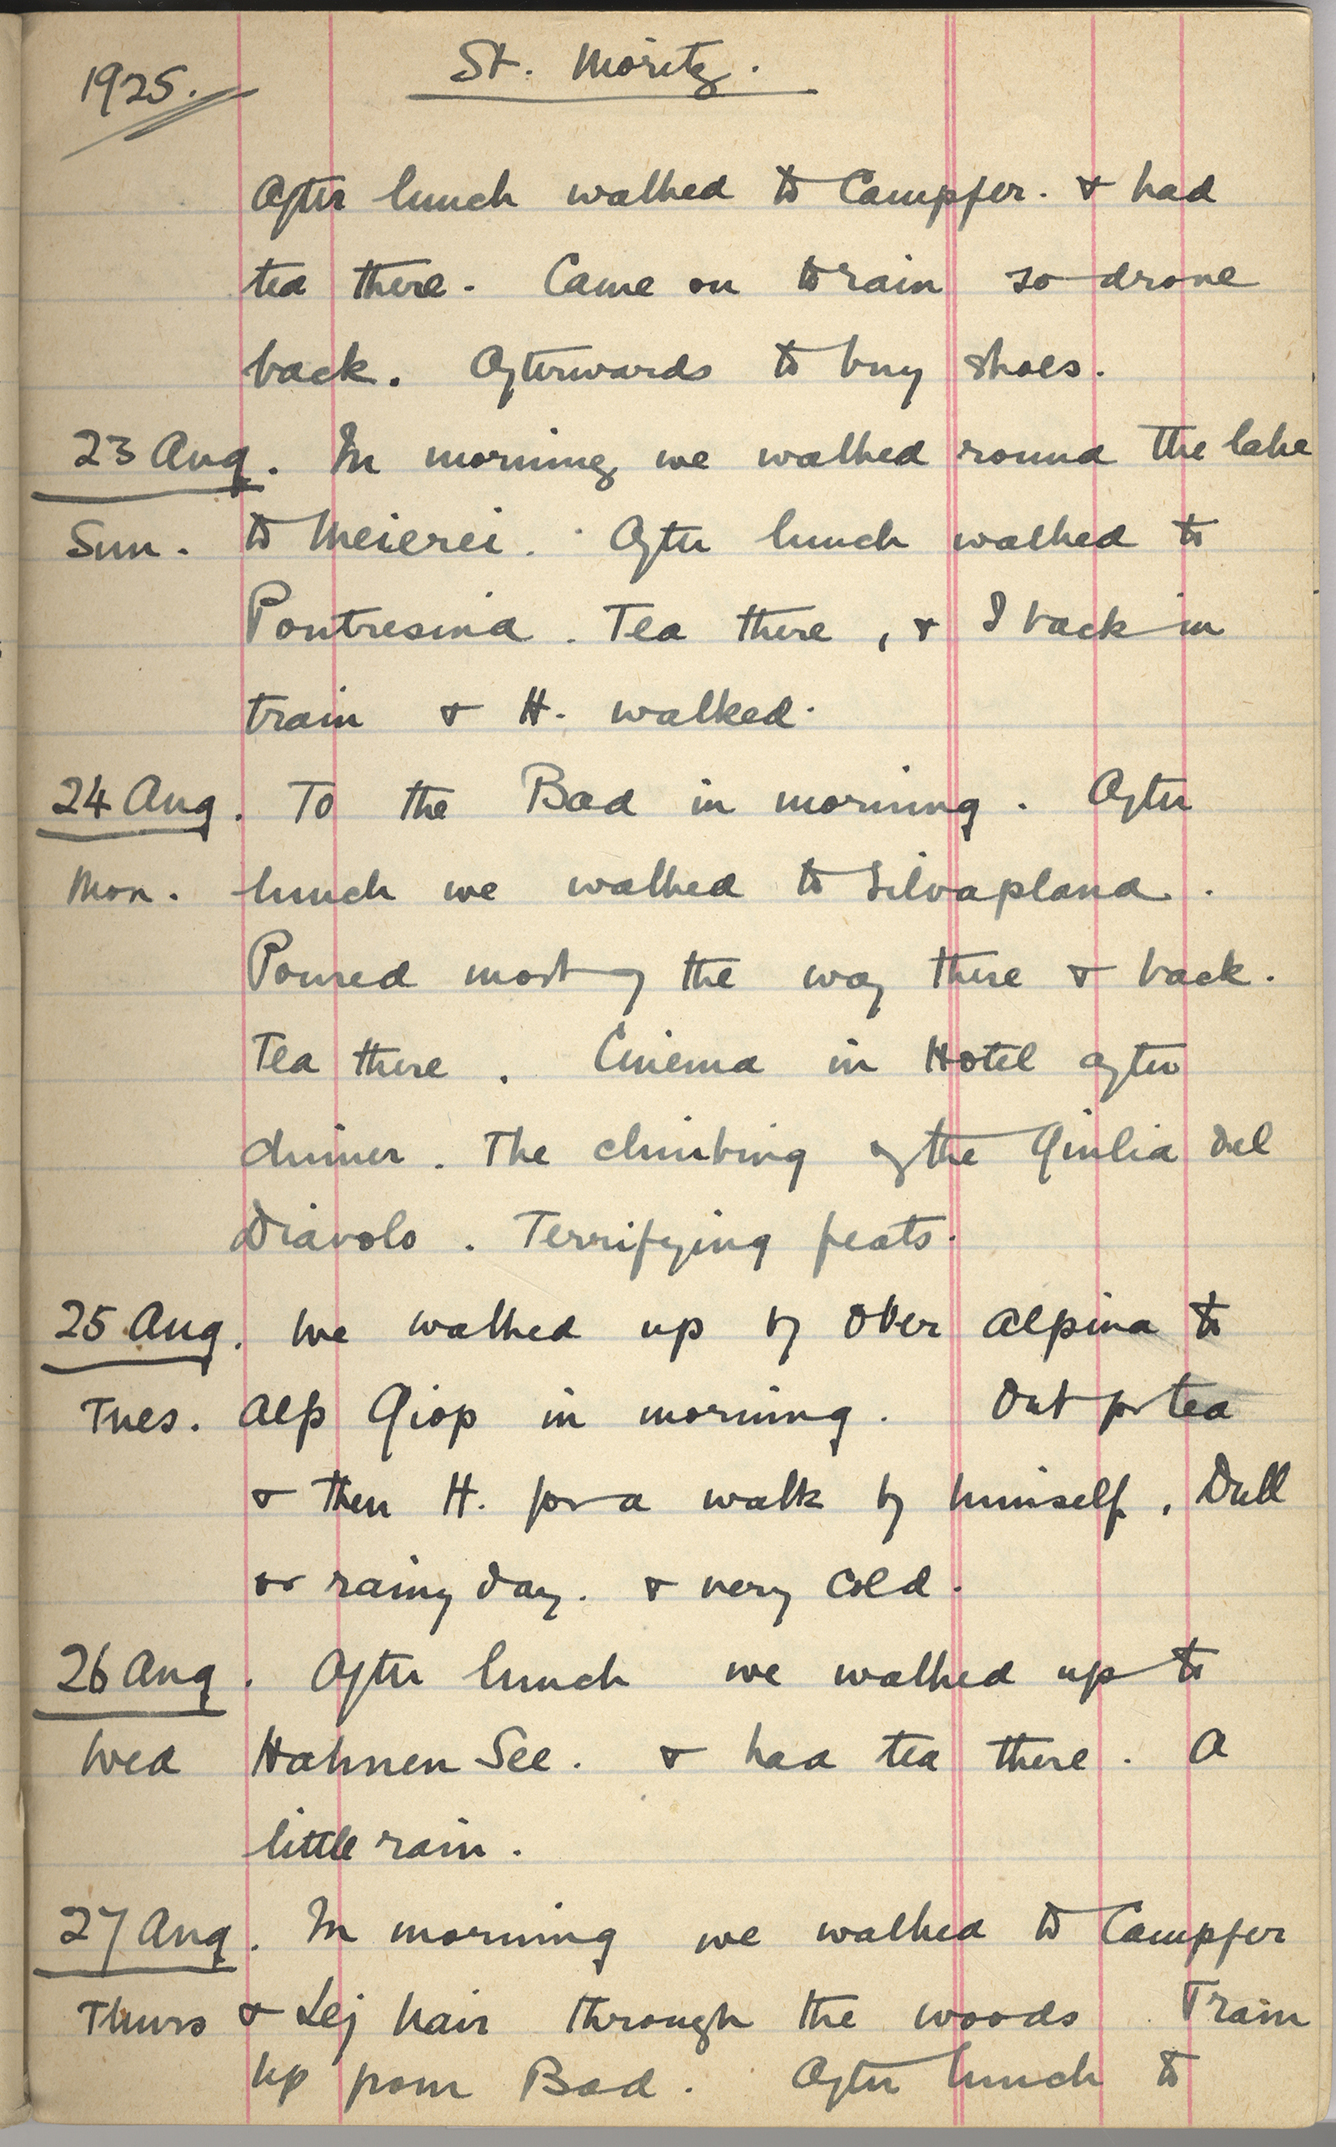 1925. St. Moritz.
After lunch walked to Campfer. & had
tea there. Came on to rain so drove
back. Afterwards to buy shoes.
23 Aug. In morning we walked round the lake
Sun. to Meierei. After lunch walked to
Pontresina. Tea there, & I back in
train & H. walked.
24 Aug. To the Bad in morning. After
Mon. lunch we walked to Silvaplana.
Poured most of the way there & back.
Tea there. Cinema in Hotel after
dinner. The climbing of the Giulia del
Diavolo. Terrifying feats.
25 Aug. We walked up by Ober Alpina to
Tues. Alp Giop in morning. Out for tea
& then H. for a walk by himself. Dull
or rainy day. & very cold.
26 Aug. After lunch we walked up to
Wed Hahnen See. & had tea there. A
little rain.
27 Aug. In morning we walked to Campfer
Thurs & Lej Nair through the woods. Tram
up from Bad. After lunch to